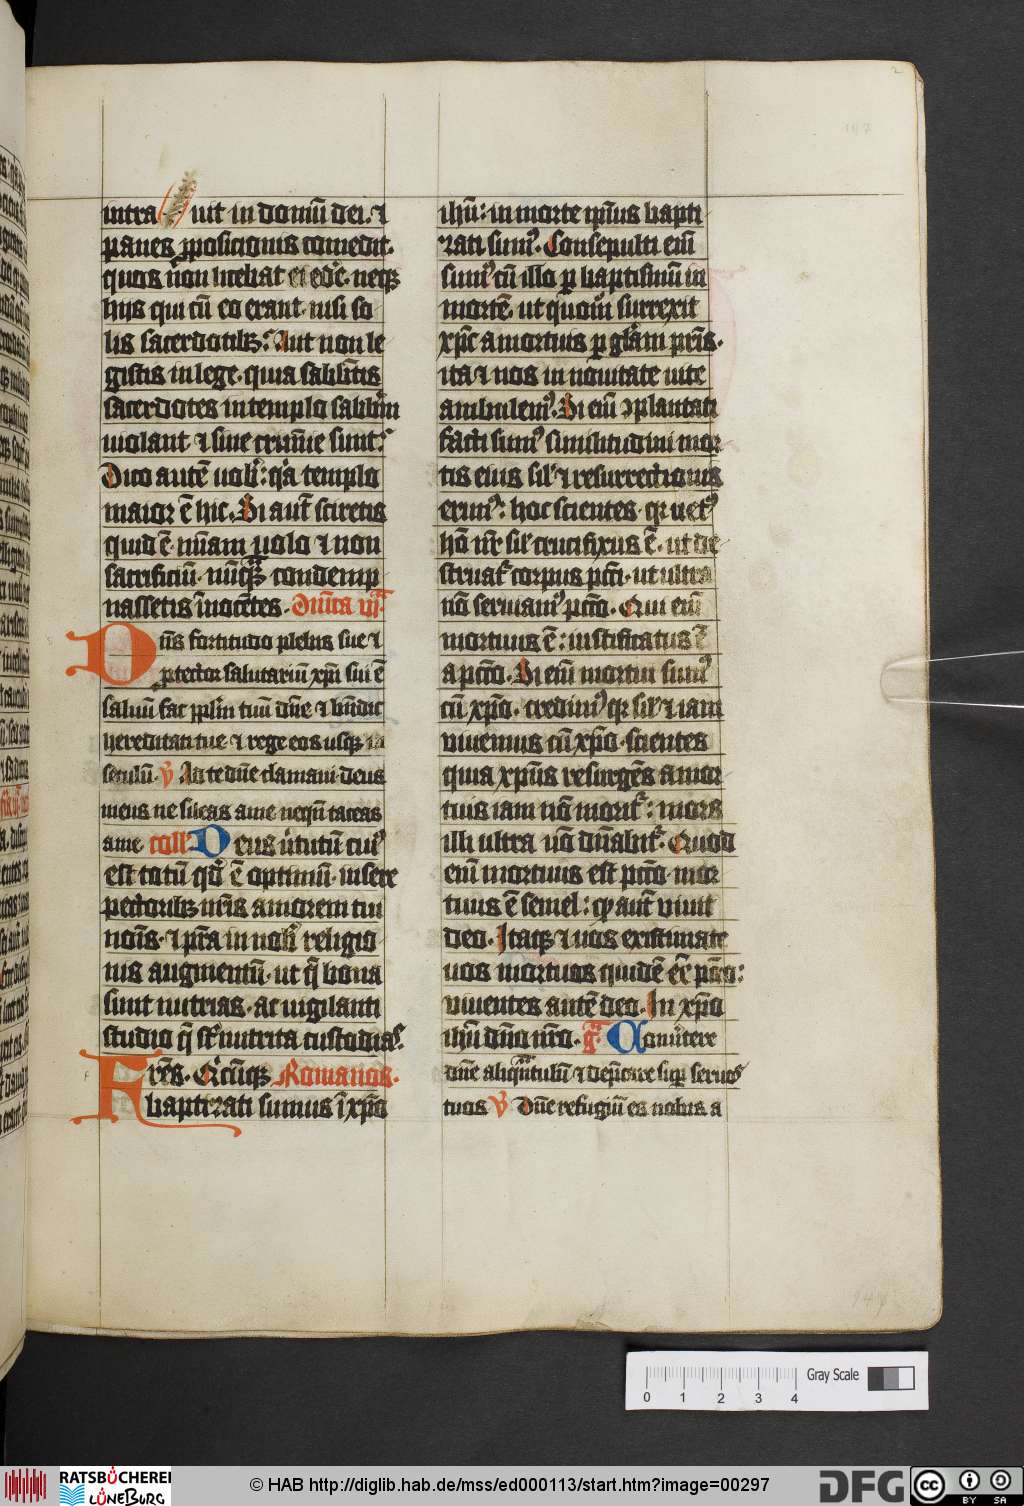 intrauit in domū dei. ⁊
panes ꝓposicionis comedit.
quos nōn licebat ei edē. neqꝫ
hijs qui cū eo erant. nisi so
lis sacerdotibꝫ. Aut non le
gistis in lege. quia sabbatis
sacerdotes in templo sabbm̄
violant ⁊ sine crimīe sunt.
Dico autē uob̾. qꝛ templo
maior ē hic. Si aut̄ sciretis
quid ē. misam uolo ⁊ non
sacrificiū. nūqꝫ condemp
nassetis īnocētes. Dnīca vii
Dn̄s fortitudo plebis sue ⁊
ꝓtector salutariū xp̄i sui ē
saluū fac pp̄lm tuū dn̄e ⁊ bn̄dic
hereditati tue ⁊ rege eos usqꝫ in
seculū. ℣ Ad te dn̄e clamaui deus
meus ne sileas a me nequn̄ taceas
a me coll Deus v̓tutū cui᾽
est totū qd̓ ē optimū. insere
pectoribꝫ nr̄is amorem tui
noīs. ⁊ p̄sta in nob̾ religio
nis augmentū. ut q̄ bona
sunt nutrias. ac vigilanti
studio q̄ st̄ nutrita custodias.
Frēs. Qicūqꝫ Romanos.
baptizati sumus ī xp̄o
ihū: in morte ip̄ius bapti
zati sum᾽. Consepulti eī
sum᾽ cū illo ꝑ baptismū in
mortē. ut quom̄ surrexit
xp̄c a mortuis ꝑ glām pr̄is.
ita ⁊ nos in nouitate uite
ambulem᾽. Si eī ꝯplantati
facti sum᾽ similitudini mor
tis eius sil̓ ⁊ resurrectionis
erim᾽: hoc scientes. qꝛ uet᾽
hō nr̄ sil̓ crucifixus ē. ut de
struat̄ corpus pcc̄i. ut ultra
nō seruiam᾽ pcc̄o. Qui eī
mortuus ē: iustificatus ē
a pcc̄o. Si eī mortui sum᾽
cū xp̄o. credim᾽ qꝛ sil̓ ⁊ iam
viuemus cū xp̄o. scientes
quia xp̄us resurgēs a mor
tuis iam nō morit̄: mors
illi ultra nō dn̄abit̄. Quod
enī mortuus est pcc̄o. mor
tuus ē semel: qꝫ aut̄ viuit
deo. Itaqꝫ ⁊ uos existimate
uos mortuos quidē eē pcc̄o:
viuentes autē deo. In xp̄o
ihū dn̄o nr̄o. Gr̄ Conu̓tere
dn̄e aliqn̄tulū ⁊ dep̄care sup̄ seruos
tuos ℣ Dn̄e refugiū es nobis a
147
0 1 2 3 4
Gray Scale
RATSBÜCHEREI
LÜNEBURG
© HAB http://diglib.hab.de/mss/ed000113/start.htm?image=00297
DFG
cc BY SA